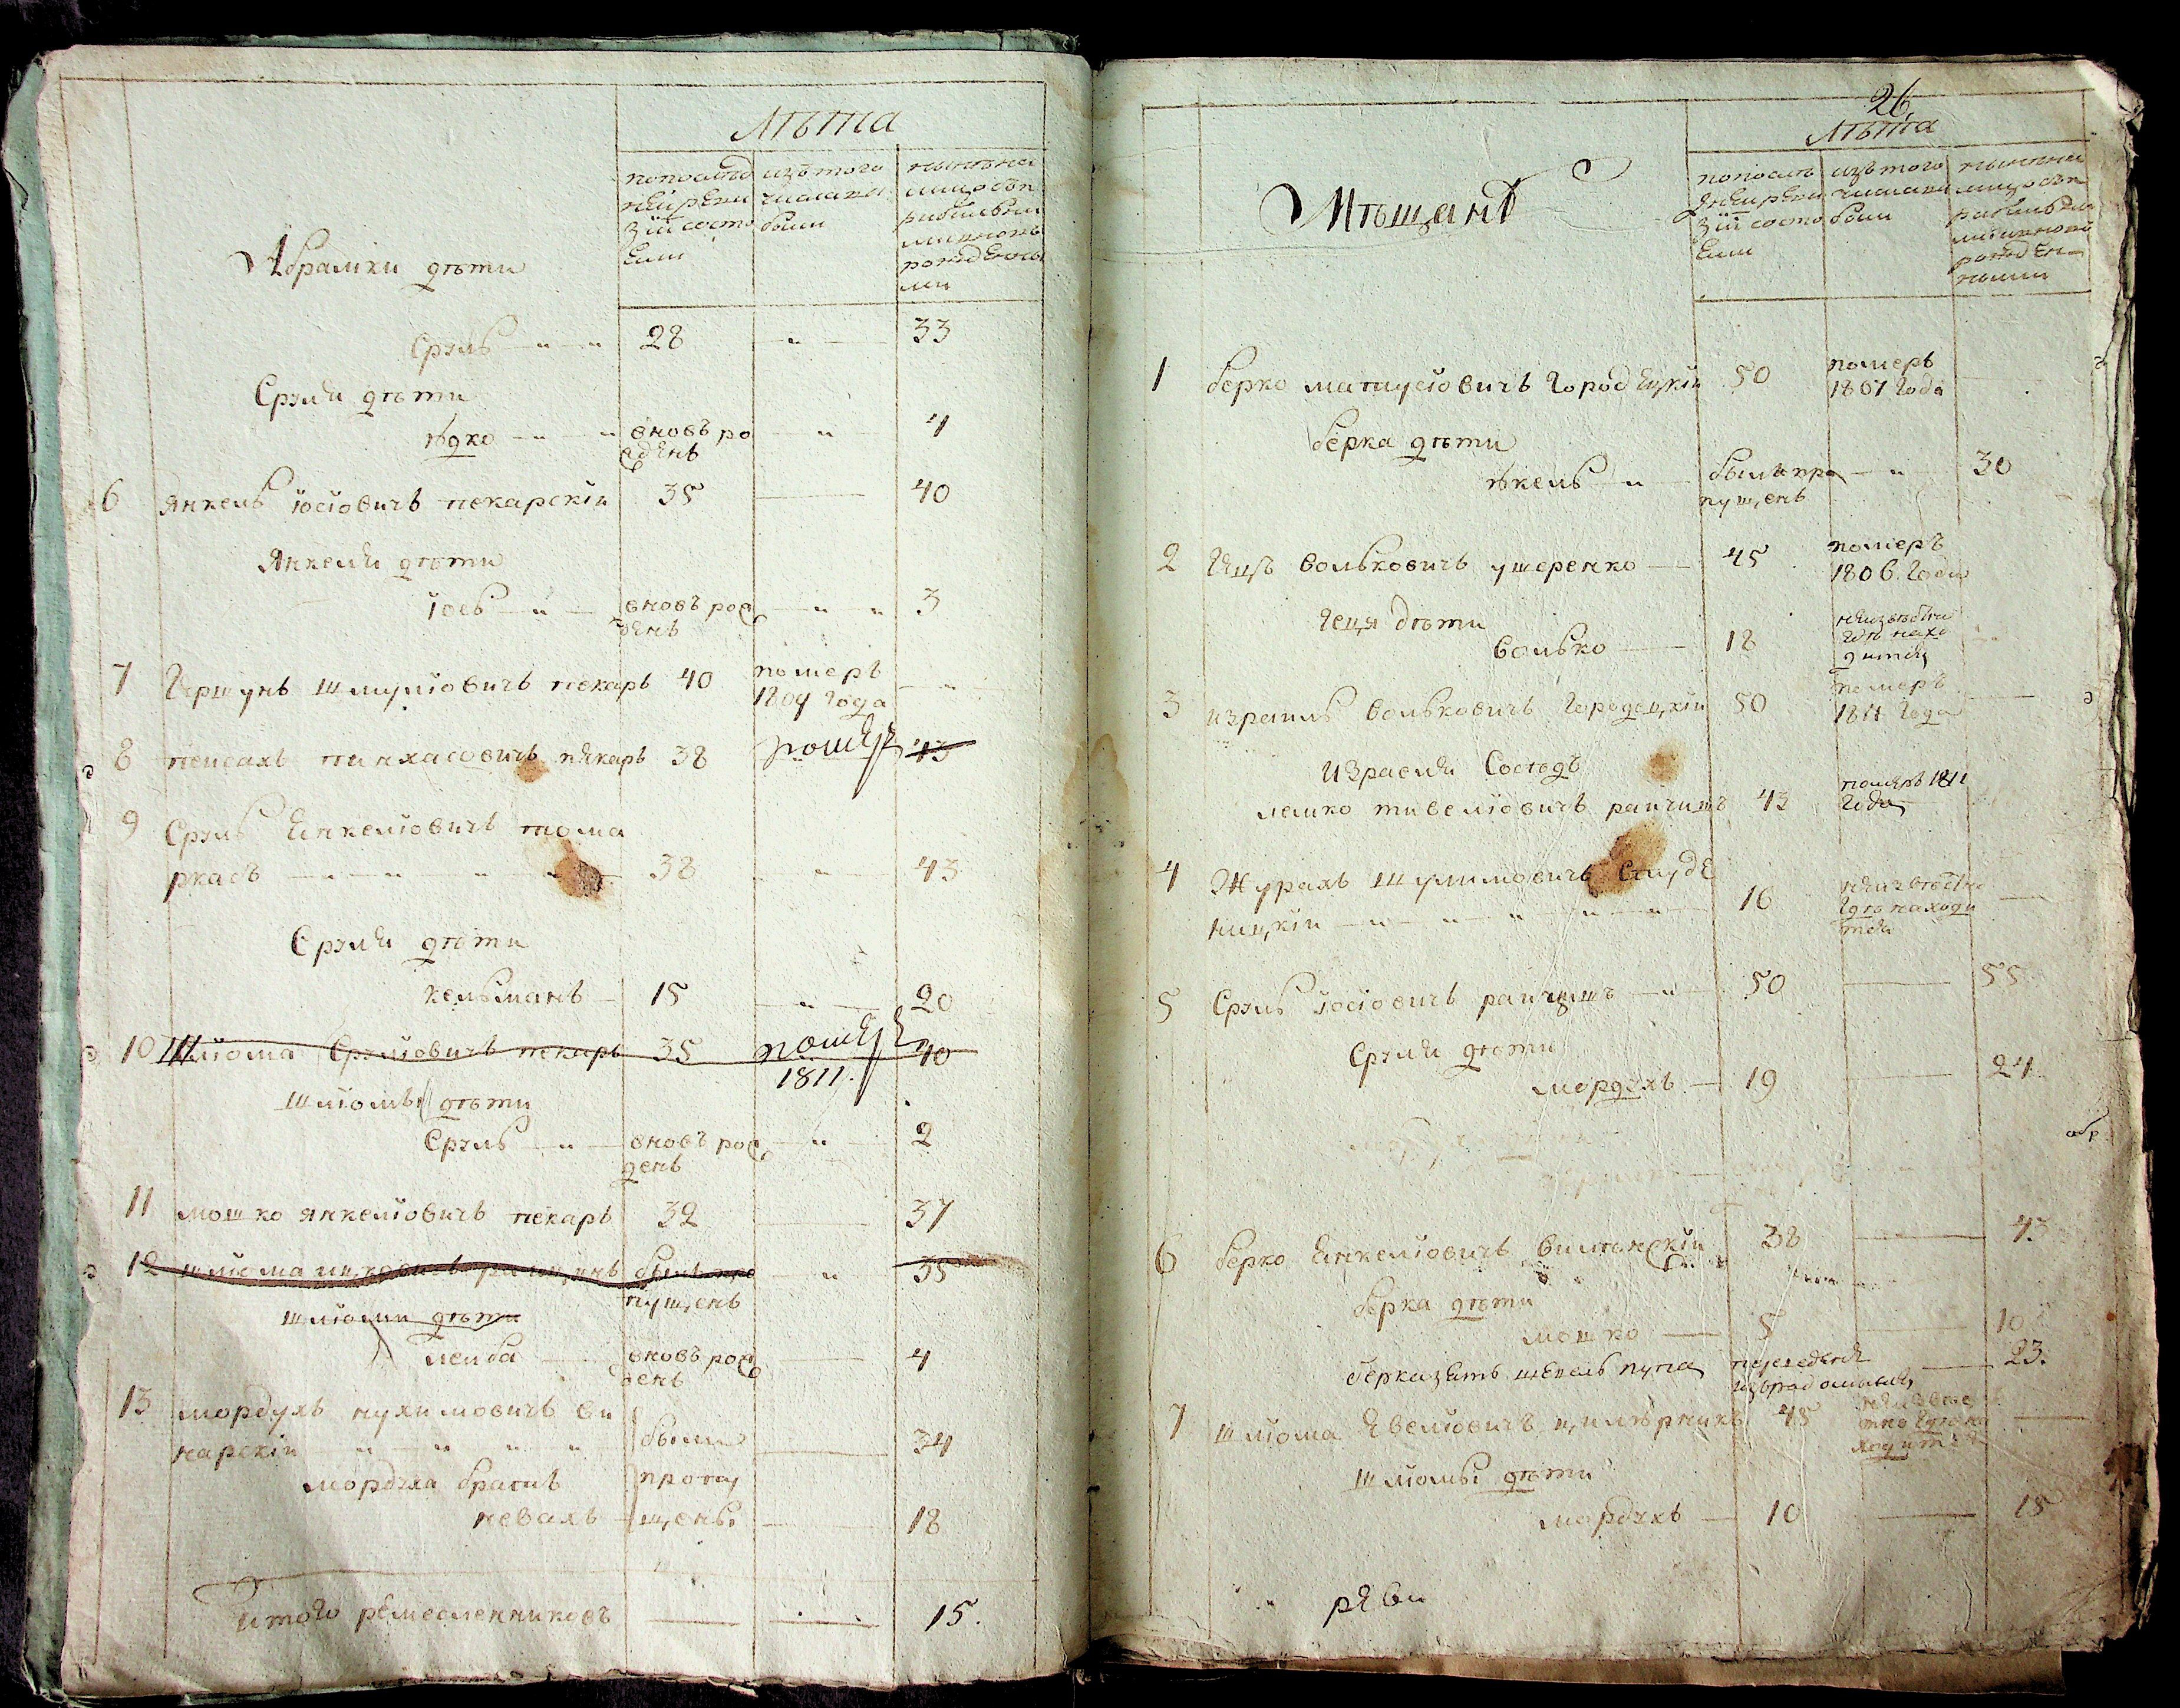 Лѣта
попослѣд
ней реви
зіи состо
яли
изътого
числа вы
были
нынѣ на
лицо съ
рожденны
ми
Абрамки дѣти
Сруль 28 33
Сруля дѣти
юдко вновь ро 4
жденъ
6 Янкель іосіовичъ пекарскіи 35 40
Янкеля дѣти
іось вновь рож 3
денъ
7 Гершунъ шмуліовичъ пекаръ 40 померъ
1809 года
8 пеисахъ пинхасовичъ пекаръ 38 померъ 43
9 Сруль Янкеліовичъ тома
ркасъ 38 43
Сруля дѣти
кельманъ 15 20
10 Шліома Срульовичъ пекаръ 35 померъ 40
1811.
шліомы дѣти
Сруль вновь рож 2
денъ
11 мошко янкеліовичъ пекаръ 32 37
12 шліома ицковичъ былъ про 35
пущенъ
шліоми дѣти
лейба вновь рож 4
денъ
13 мордухъ нухимовичъ ви
нарскіи были 34
мордуха братъ пропу
невахъ щены 18
Итого ремесленниковъ 15.
26
Лѣта
Мѣщанѣ
попослѣ
дней реви
зіи состо
яли
изътого
числа вы
были
нынѣ на
лицо съ
рожден
ными
1 берко матусіовичъ городецкіи 50 померъ
1807 года
берка дѣти
юкель былъ про 30
пущенъ
2 Гецъ вольковичъ ушеренко 45 померъ
1806. года
Геця дѣти
волько 18 неизвѣстно
гдѣ нахо
дится
3 израиль вольковичъ городецкіи 50 померъ
1811 года
Израеля Сосѣдъ
лейко тивеліовичъ раичинъ 43 померъ 1811
года
4 Журахъ шулимовичъ Слуде
ницкіи 16 неизвѣстно
гдѣ находи
тся
5 Сруль іосіовичъ раичинъ 50 55
Сруля дѣти
мордухъ 19 24
6 берко Янкеліовичъ вилинскіи 38 43
берка дѣти
мошко 5 10
берка зять пупа переведенъ 23.
изърадомысля
7 шліома Явеліовичъ цилюрникъ 45 неизвѣс
тно гдѣ на
ходится
шліомы дѣти
мордухъ 10 15
реви